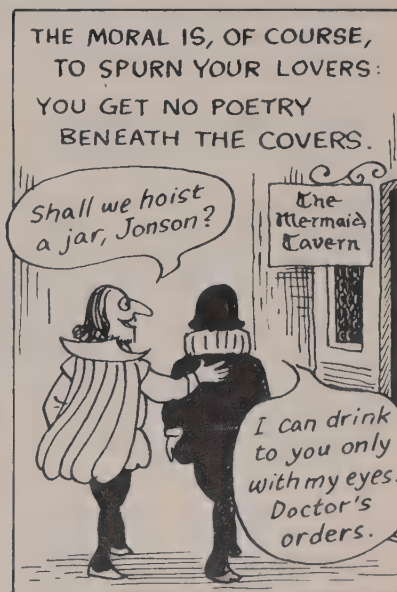 THE MORAL IS, OF COURSE,
TO SPURN YOUR LOVERS:
YOU GET NO POETRY
BENEATH THE COVERS.
Shall we hoist
a jar, Jonson?
The
Mermaid
Tavern
I can drink
to you only
with my eyes.
Doctor's
orders.